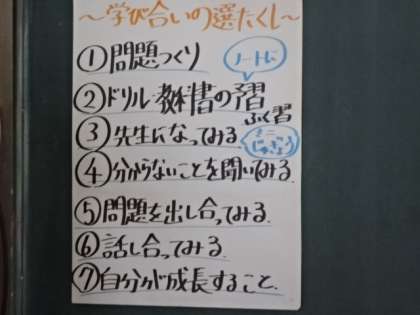 〜学び合いの選たくし〜
①問題つくり
ノートに
②ドリル・教科書の習
ふく習
③先生になってみる.
ミニじゅぎょう
④分からないことを聞いてみる.
⑤問題を出し合ってみる.
⑥話し合ってみる.
⑦自分が成長すること.